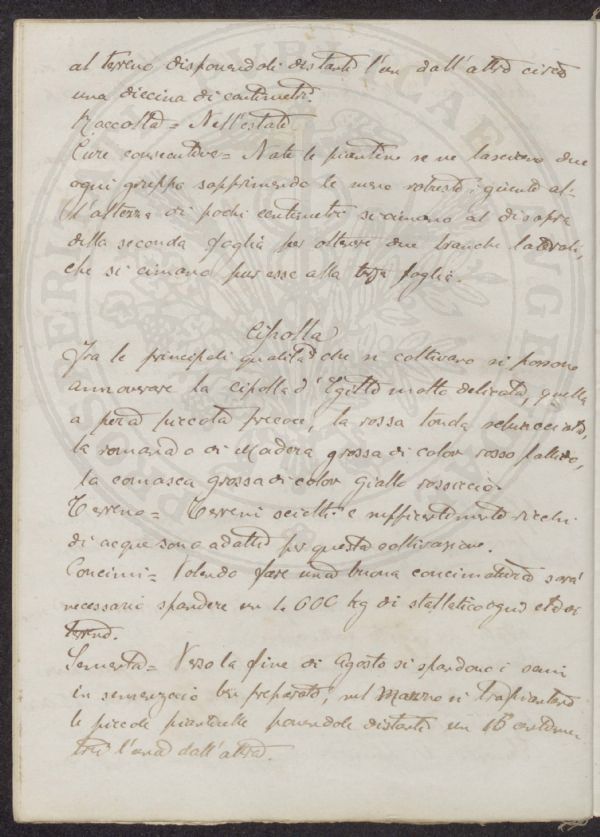 al terreno disponendoli distanti l'un dall'altro circa
una diecina di centimetri.
Raccolta = Nell'estate
Cure consecutive = Nate le piantine se ne lasciano due
ogni gruppo sopprimendo le meno robuste; giunte al-
l'altezza di pochi centimetri si cimano al disopra
della seconda foglia per ottenere due branche laterali,
che si cimano pur esse alla terza foglia.
Cipolla
Fra le principali qualità che si coltivano si possono
annoverare la cipolla d'Egitto molto delicata, quella
a pera piccola precoce, la rossa tonda schiacciata,
la romana o di Madera grossa di color rosso pallido,
la comasca grossa di color giallo rossiccio.
Terreno = Terreni sciolti e sufficientemente ricchi
di acque sono adatti per questa coltivazione.
Concimi = Volendo fare una buona concimatura sarà
necessario spandere un 600 kg di stallatico ogni
terreno.
Sementa = Verso la fine di Agosto si spandono i semi
in semenzaio ben preparato, nel Marzo si trapiantano
le piccole pianticelle ponendole distanti un 15 centime-
tri l'una dall'altra.